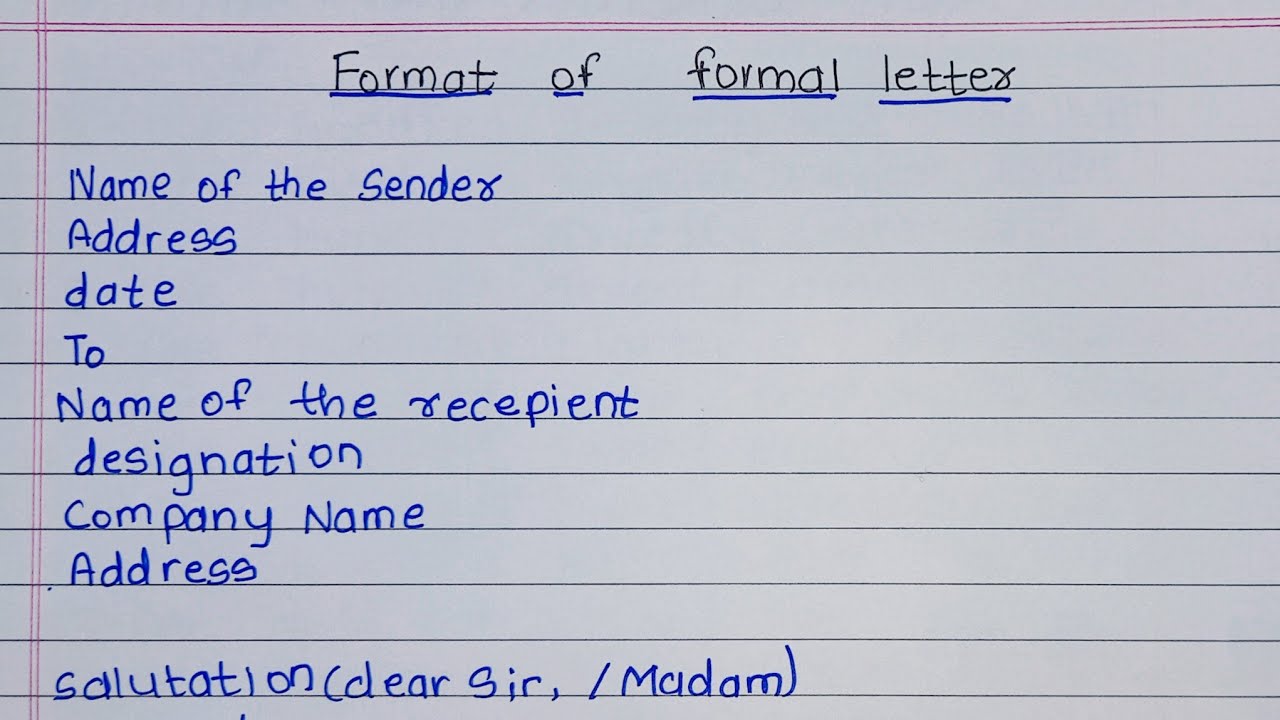 Format of formal letter
Name of the Sender
Address
date
To
Name of the recepient
designation
Company Name
Address
Salutation (dear Sir, / Madam)